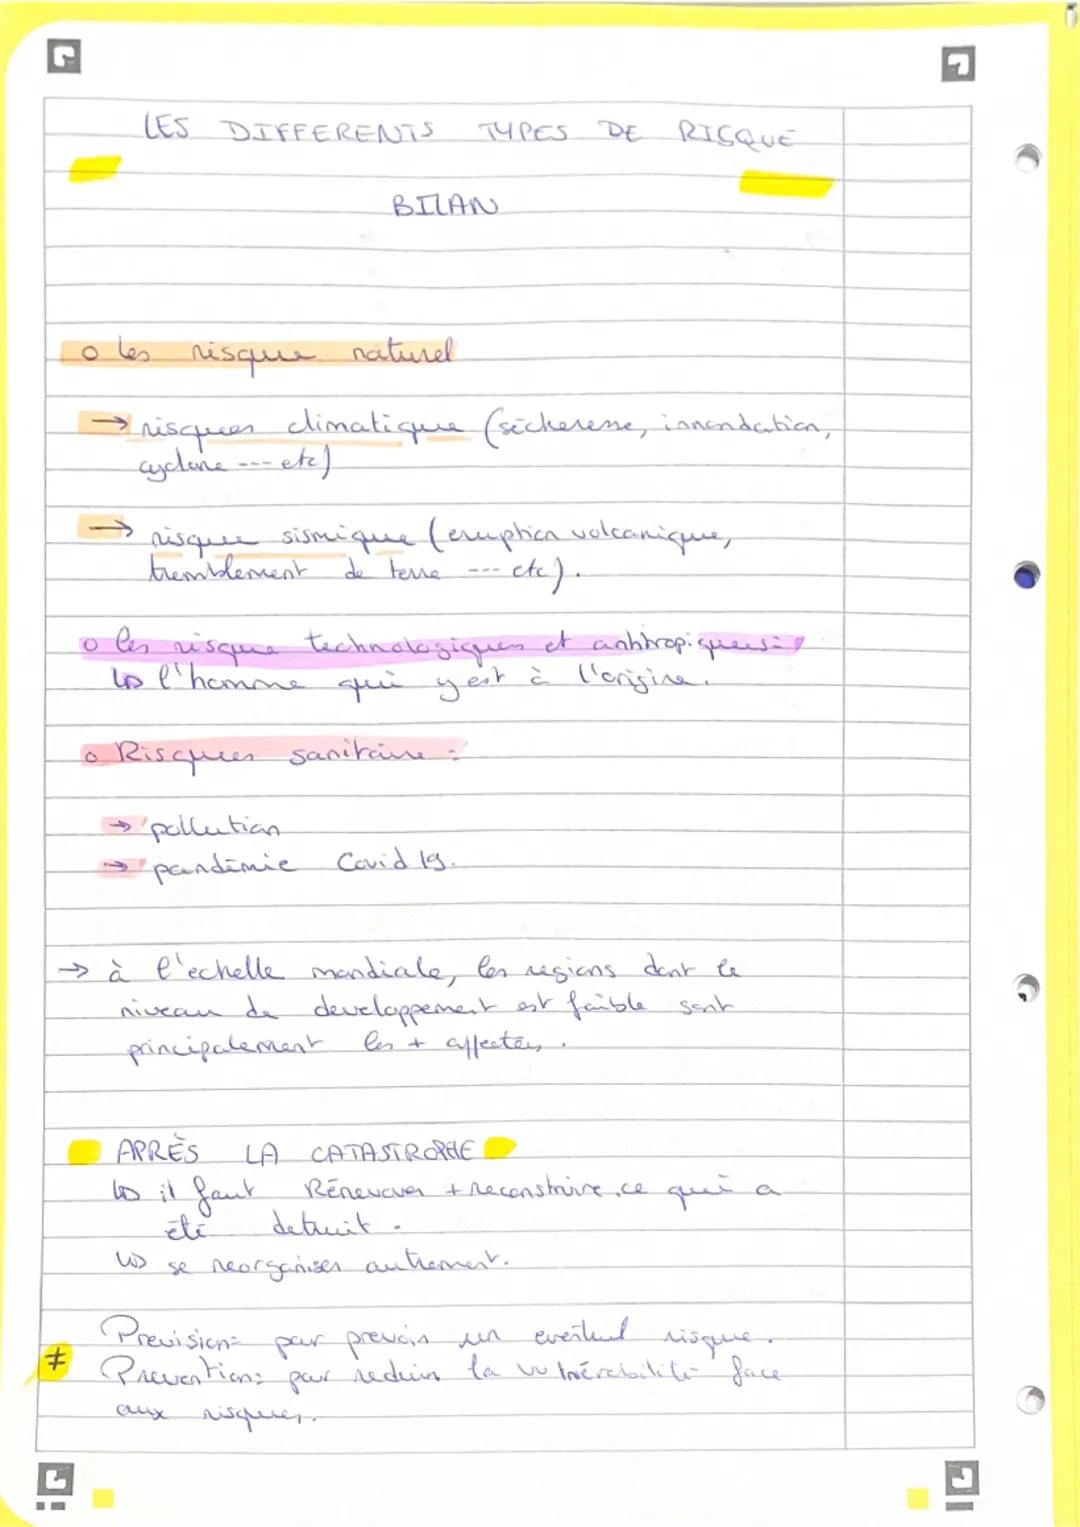 LES DIFFERENTS TYPES DE RISQUE
BILAN
o les risque naturel
→ risques climatique (sécheresse, innondation,
cyclone --- etc)
→ risque sismique (eruption volcanique,
tremblement de terre --- etc).
o les risque technologiques et anhtropiques:
↳ l'homme qui y est à l'origine.
o Risques sanitaire :
→ pollution
→ pandémie Covid 19.
→ à l'echelle mondiale, les regions dont le
niveau de developpement est faible sont
principalement les + affectées.
APRÈS LA CATASTROPHE
↳ il faut Rénover + reconstruire ce qui a
été detruit.
↳ se reorganiser autrement.
Prevision= pour prevoir un eventuel risque.
≠ Prevention= pour reduire la vulnérabilité face
aux risques.